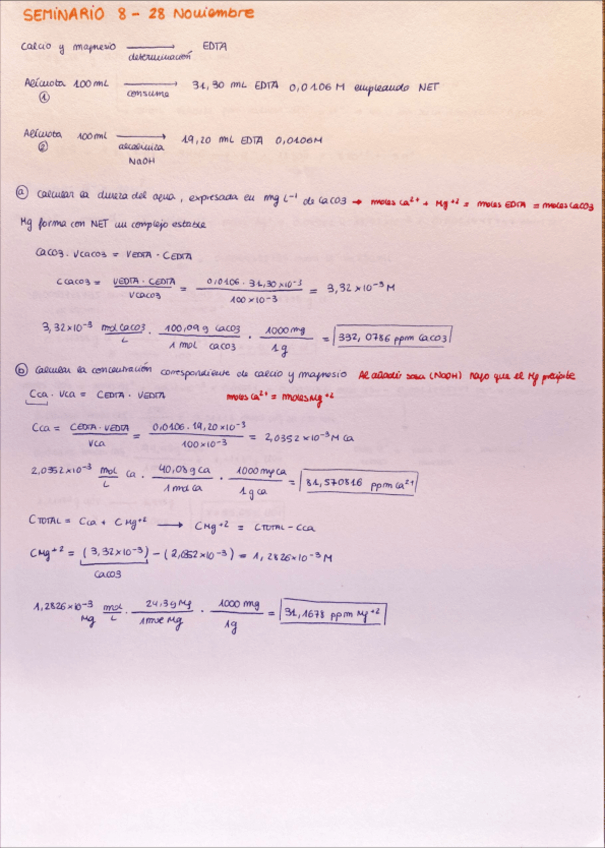 SEMINARIO 8 - 28 Noviembre
Calcio y magnesio ⟶ determinación EDTA
Alícuota 100 mL ⟶ consume 31,30 mL EDTA 0,0106 M empleando NET
①
Alícuota 100 mL ⟶ alcaliniza 19,20 mL EDTA 0,0106M
② NaOH
ⓐ Calcular la dureza del agua, expresada en mg L⁻¹ de CaCO3 → moles Ca²⁺ + Mg⁺² = moles EDTA = moles CaCO3
Mg forma con NET un complejo estable
CCaCO3 · VCaCO3 = VEDTA · CEDTA
CCaCO3 = VEDTA · CEDTA / VCaCO3 = 0,0106 · 31,30×10⁻³ / 100×10⁻³ = 3,32×10⁻³ M
3,32×10⁻³ mol CaCO3 / L · 100,09 g CaCO3 / 1 mol CaCO3 · 1000mg / 1g = 332,0786 ppm CaCO3
ⓑ Calcular la concentración correspondiente de calcio y magnesio Al añadir sosa (NaOH) hago que el Mg precipite
Cca · Vca = CEDTA · VEDTA moles Ca²⁺ = moles Mg⁺²
Cca = CEDTA · VEDTA / Vca = 0,0106 · 19,20×10⁻³ / 100×10⁻³ = 2,0352×10⁻³ M Ca
2,0352×10⁻³ mol / L Ca · 40,08 g Ca / 1 mol Ca · 1000 mg Ca / 1 g Ca = 81,570816 ppm Ca²⁺
CTOTAL = Cca + CMg⁺² ⟶ CMg⁺² = CTOTAL - Cca
CMg⁺² = (3,32×10⁻³) - (2,0352×10⁻³) = 1,2826×10⁻³ M
CaCO3
1,2826×10⁻³ mol / L Mg · 24,3 g Mg / 1 mol Mg · 1000 mg / 1g = 31,1678 ppm Mg⁺²